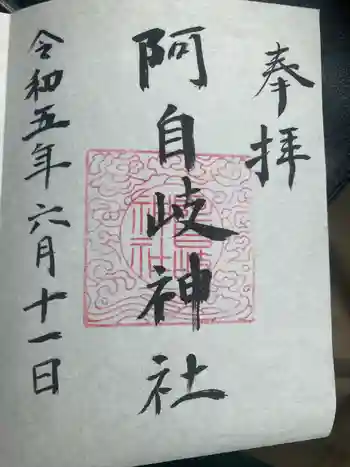 奉拝
阿自岐神社
令和五年六月十一日